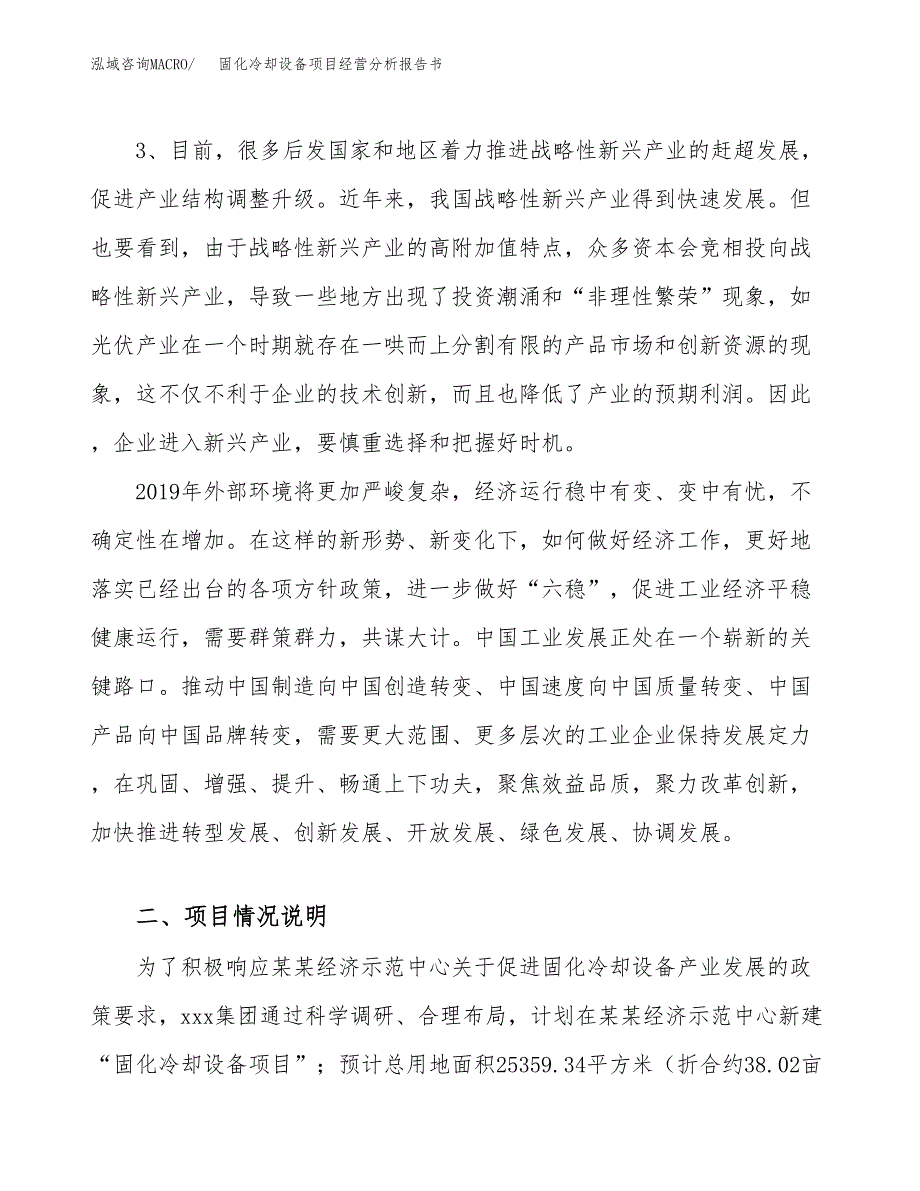 泓域咨询MACRO/ 固化冷却设备项目经营分析报告书
3、目前，很多后发国家和地区着力推进战略性新兴产业的赶超发展，
促进产业结构调整升级。近年来，我国战略性新兴产业得到快速发展。但
也要看到，由于战略性新兴产业的高附加值特点，众多资本会竞相投向战
略性新兴产业，导致一些地方出现了投资潮涌和“非理性繁荣”现象，如
光伏产业在一个时期就存在一哄而上分割有限的产品市场和创新资源的现
象，这不仅不利于企业的技术创新，而且也降低了产业的预期利润。因此
，企业进入新兴产业，要慎重选择和把握好时机。
2019年外部环境将更加严峻复杂，经济运行稳中有变、变中有忧，不
确定性在增加。在这样的新形势、新变化下，如何做好经济工作，更好地
落实已经出台的各项方针政策，进一步做好“六稳”，促进工业经济平稳
健康运行，需要群策群力，共谋大计。中国工业发展正处在一个崭新的关
键路口。推动中国制造向中国创造转变、中国速度向中国质量转变、中国
产品向中国品牌转变，需要更大范围、更多层次的工业企业保持发展定力
，在巩固、增强、提升、畅通上下功夫，聚焦效益品质，聚力改革创新，
加快推进转型发展、创新发展、开放发展、绿色发展、协调发展。
二、项目情况说明
为了积极响应某某经济示范中心关于促进固化冷却设备产业发展的政
策要求，xxx集团通过科学调研、合理布局，计划在某某经济示范中心新建
“固化冷却设备项目”；预计总用地面积25359.34平方米（折合约38.02亩